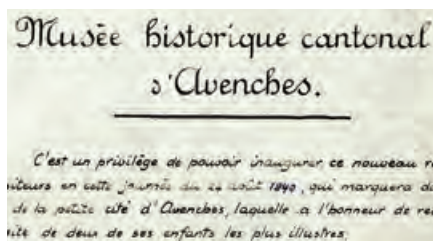 Musée historique cantonal
d'Avenches.
C'est un privilège de pouvoir inaugurer ce nouveau r
siteurs en cette journée du 24 août 1840, qui marquera d
de la petite cité d'Avenches, laquelle a l'honneur de re
site de deux de ses enfants les plus illustres